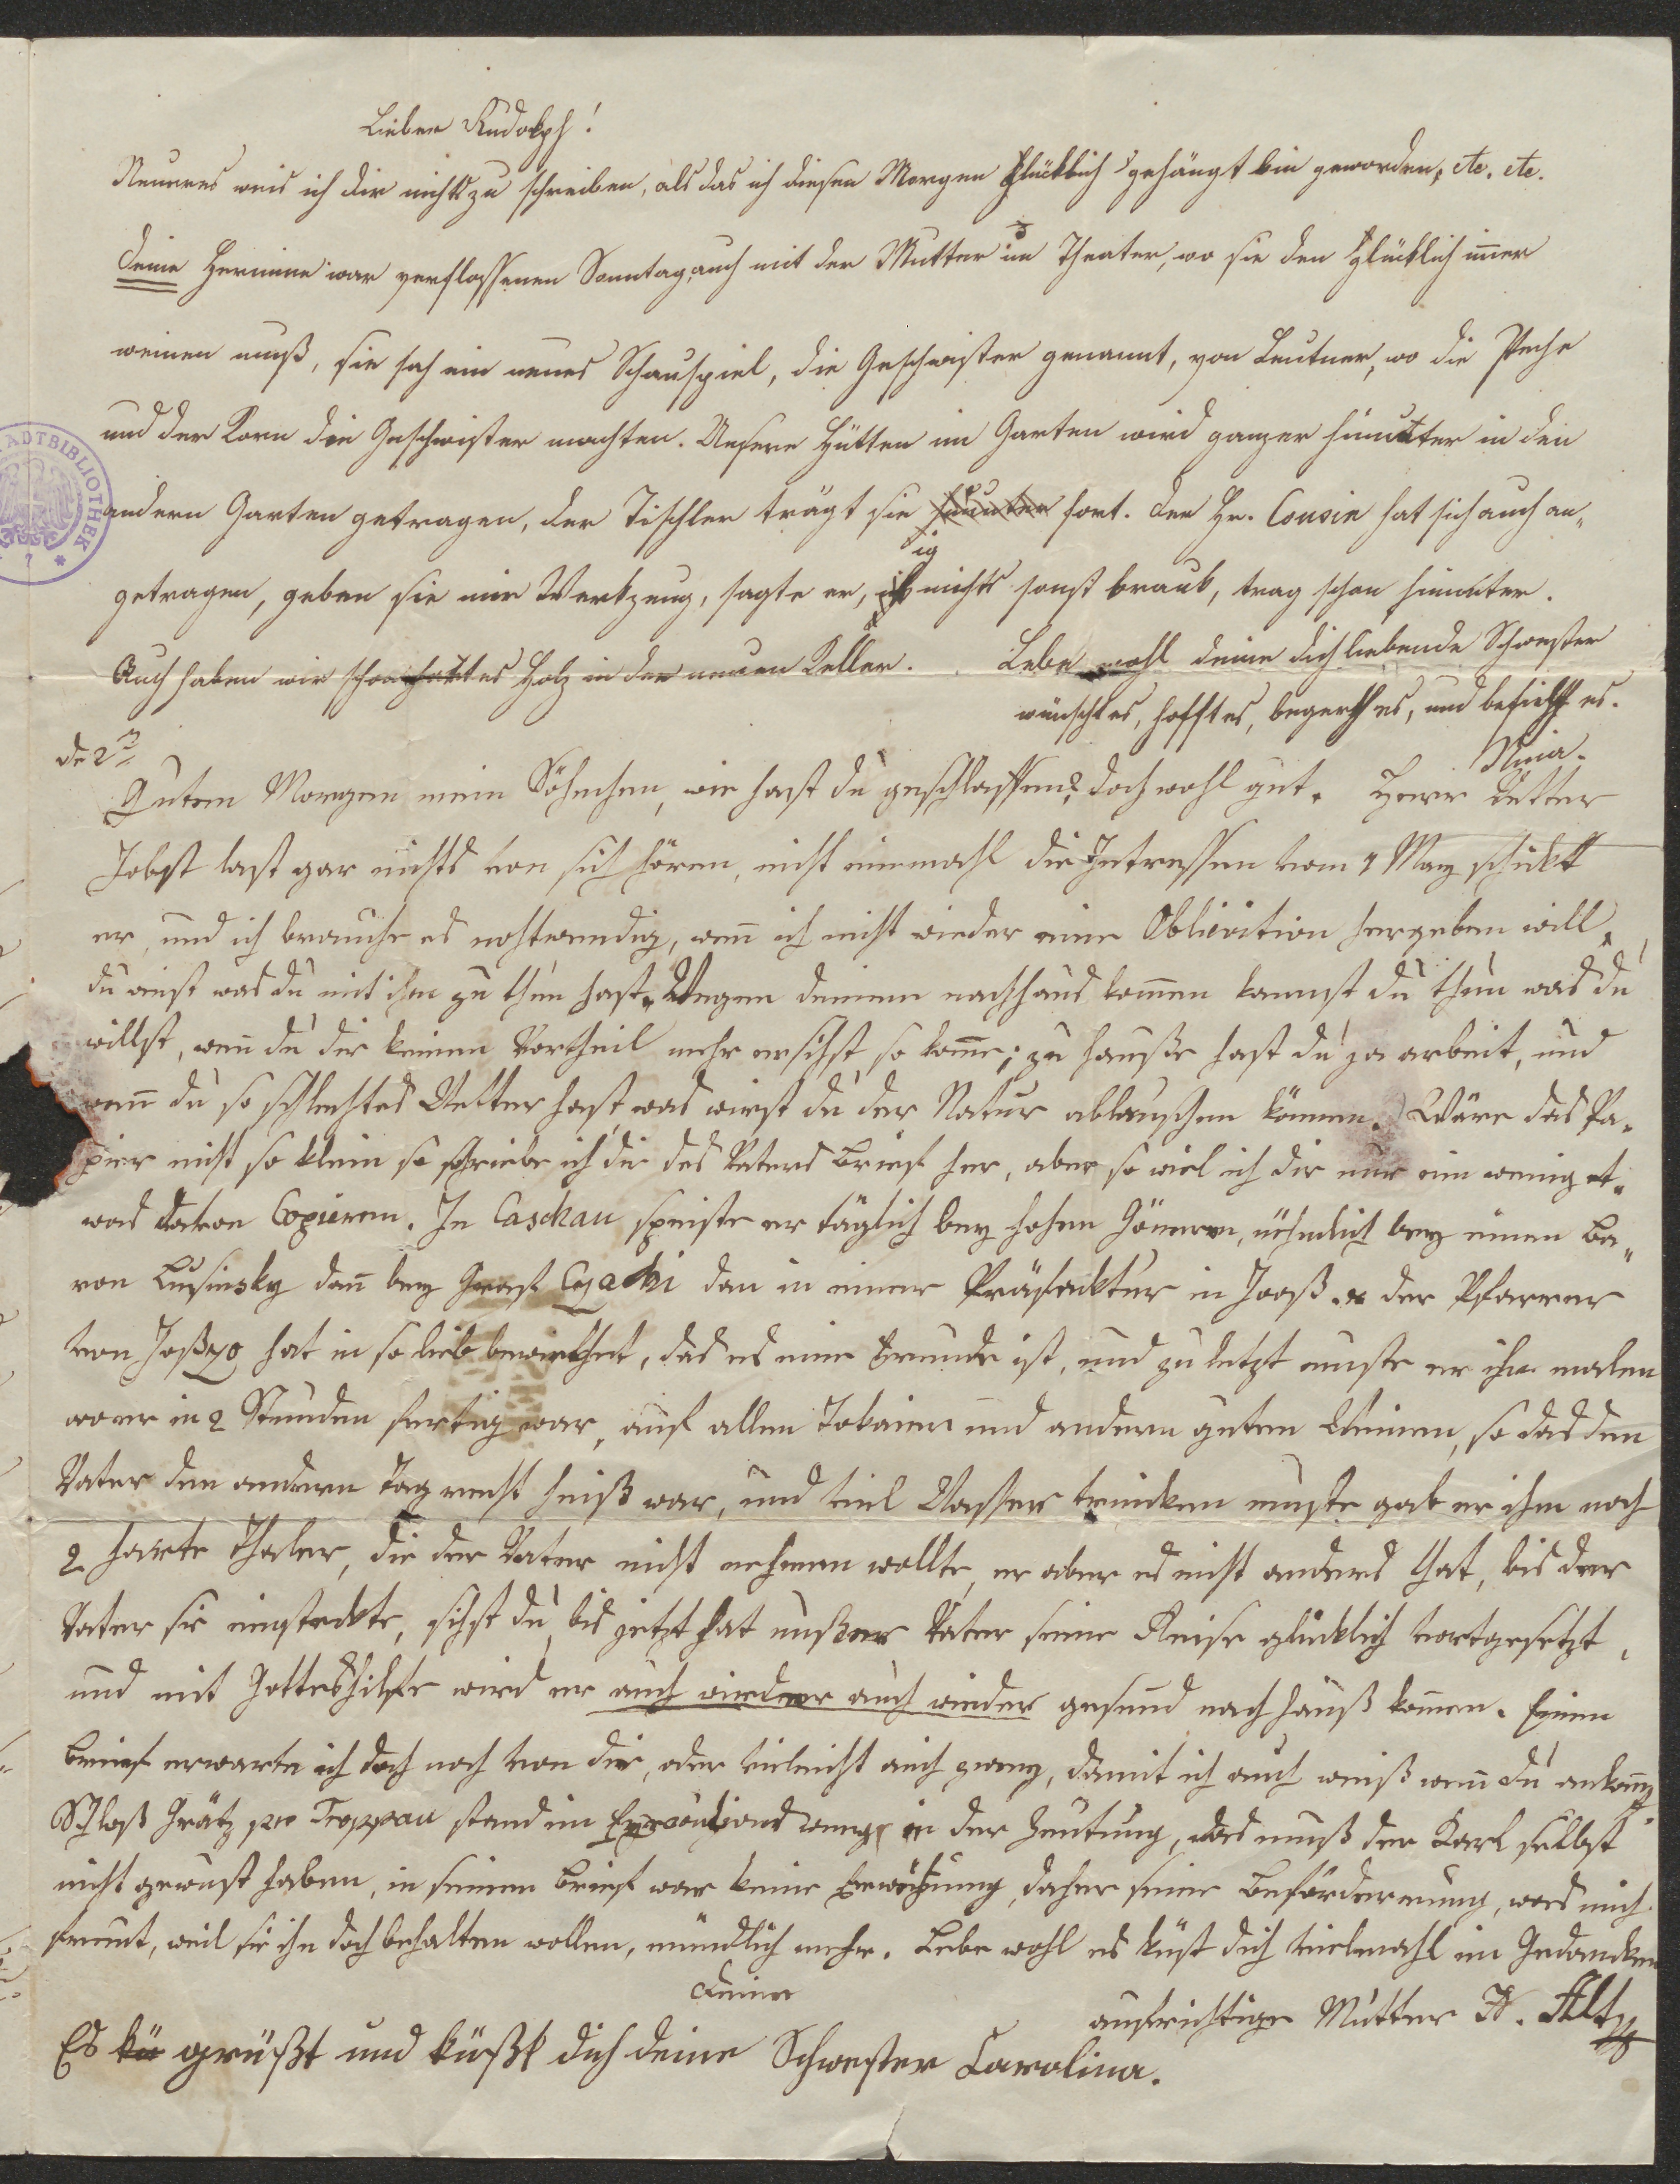 Lieber Rudolph!
Neueres weis ich dir nichts zu schreiben, als das ich diesen Morgen glücklich gehängt bin geworden, etc. etc.
deine Hermine war verflossenen Sonntag, auch mit der Mutter im Theater, wo sie den glücklich immer
weinen muß, sie sah ein neues Schauspiel, die Geschwister genannt, von Leutner, wo die Peche
und der Korn die Geschwister machten. Unsere Hütten im Garten wird ganzer hinunter in den
andern Garten getragen, der Tischler trägt sie hinunter fort. Der Hr. Cousin hat sich auch an„
getragen, geben sie mir Werkzeug, sagte er, ig nichts sonst braub, trag schon hinunter.
Auch haben wir schon hartes Holz in der neuen Keller. Lebe wohl deine dich liebende Schwester
wünscht es, hofft es, begert es, und befiehlt es.
Nina.
de 2tn
Guten Morgen mein Söhnchen, wie hast du geschlaffen? doch wohl gut. Herr Vetter
Jobst last gar nichts von sich hören, nicht einmahl die Intressen vom 1 May schickt
er, und ich brauche es nohtwendig, wenn ich nicht wieder eine Obligation hergeben will.
du weist was du mit ihm zu thun hast. Wegen deinem nachhaus kommen kannst du thun was du
willst, wenn du dir keinen Vortheil mehr ersihst so komme; zu Hauße hast du ja arbeit, und
wenn du so schlechtes Wetter hast, was wirst du der Natur ablaußchen können. Wäre das Pa„
pier nicht so klein so schriebe ich dir des Vaters Brief her, aber so wiel ich dir nur ein wenig et„
was davon Copieren. In Caschau speiste er täglich bey hohen Gönnern, nehmlich bey einen Ba„
ron Lusinsky dann bey Graf Czaki dan in einer Präfecktur in Jooß. der Pfarrer
von Joßzo hat in so lieb bewirthet, das es eine Freude ist, und zu letzt muste er ihn malen
wo er in 2 Stunden fertig war, auf allen Tokaier und andern guten Weinen, so das den
Vater den andern Tag recht heiß war, und viel Wasser trincken muste gab er ihm noch
2 harte Thaler, die der Vater nicht nehmen wollte, er aber es nicht anders that, bis der
Vater sie einsteckte, sihst du, bis jetzt hat unßer Vater seine Reise glücklich vortgesetzt,
und mit Gotteshilfe wird er auch wieder auch wieder gesund nach Hauß kommen. Einen
Brief erwarte ich doch noch von dir, oder vieleicht auch zwey, damit ich auch weiß wenn du ankomst.
Schloß Grätz pro Troppau stand in der Zeutung, das muß der Karl selbst
nicht gewust haben, in seinen Brief war keine Erwähnung, daher seine Beförderung, was mich
freut, weil sie ihn doch behalten wollen, mündlich mehr. Lebe wohl es küst dich vielmahl im Gedancken
deine
aufrichtige Mutter A. Alt
Es kü grüßt und küßt dich deine Schwester Carolina.